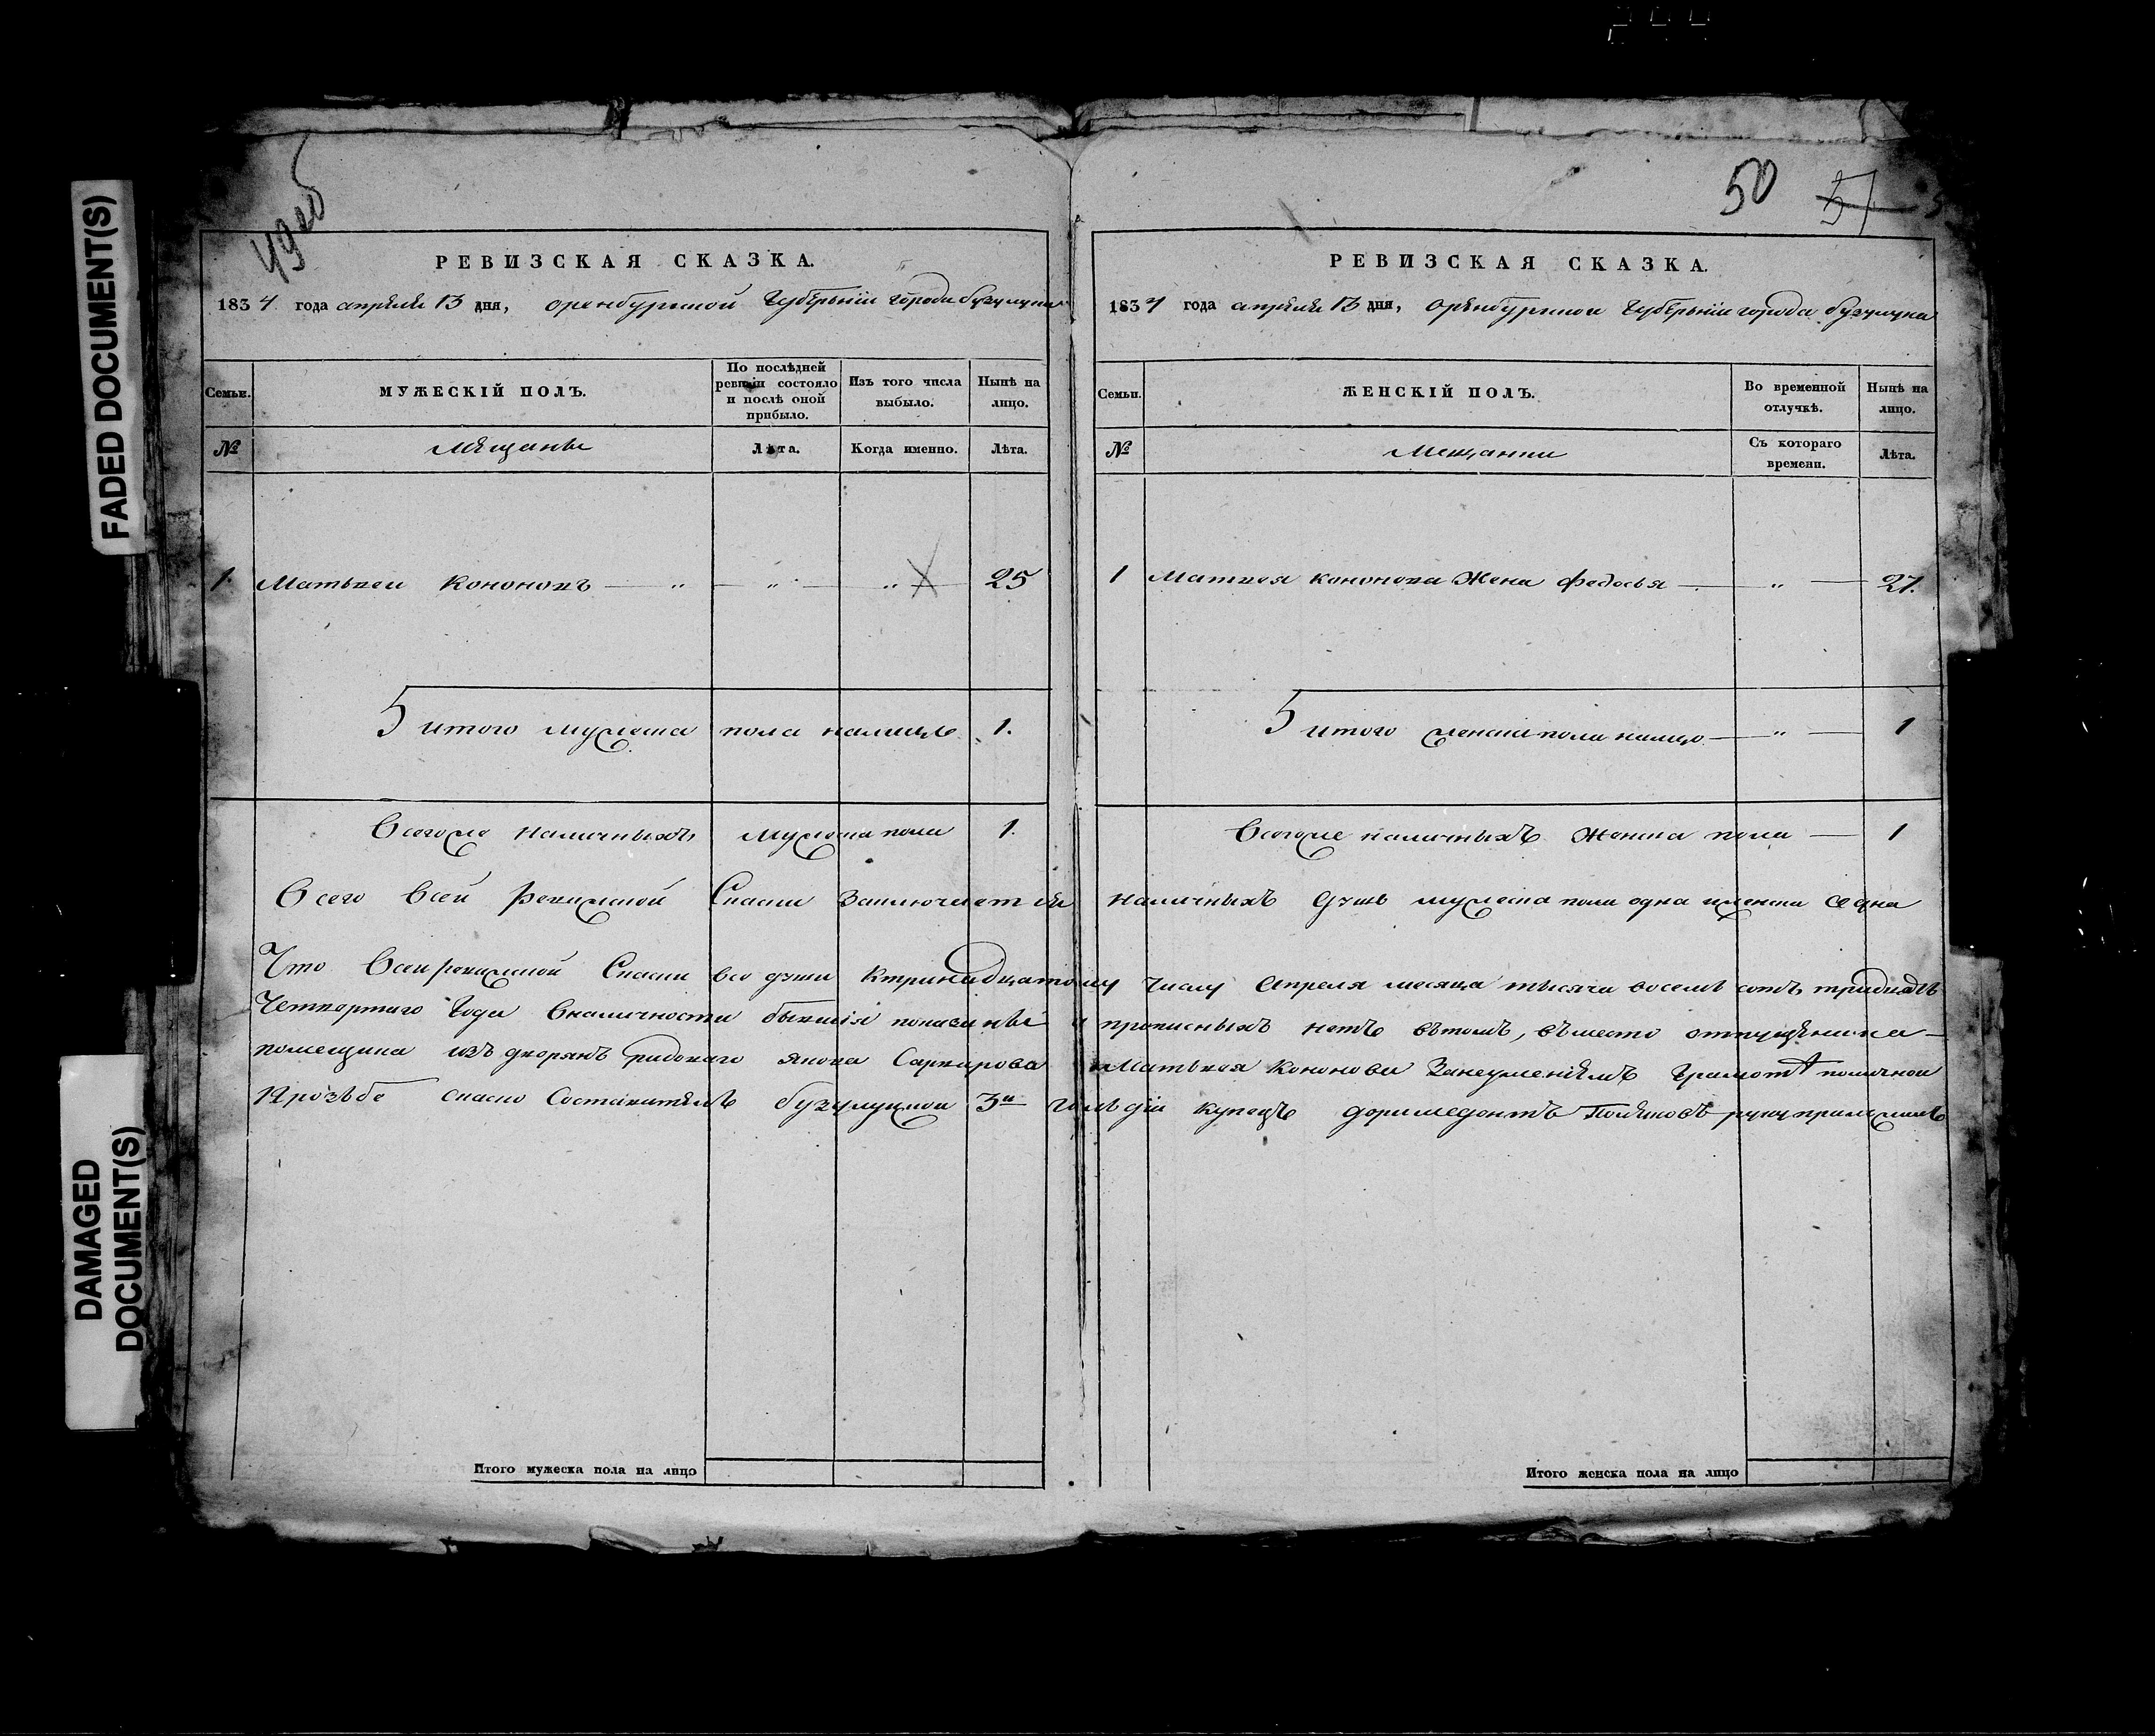 FADED DOCUMENT(S)
DAMAGED DOCUMENT(S)
49об
РЕВИЗСКАЯ СКАЗКА.
1834 года апреля 13 дня, оренбургской Губерьнии города бузулука
Семьи.
МУЖЕСКІЙ ПОЛЪ.
По послѣдней ревизіи состояло и послѣ оной прибыло.
Изъ того числа выбыло.
Нынѣ на лицо.
№
Мещанѣ
Лѣта.
Когда именно.
Лѣта.
1. Матвеи Кононовъ — „ — „ — „ — 25
итого мужеска пола налицо 1.
Всегоже наличныхъ мужеска пола 1.
50 51
РЕВИЗСКАЯ СКАЗКА.
1834 года апреля 13 дня, оренбургскои Губерьнии города бузулука
Семьи.
ЖЕНСКІЙ ПОЛЪ.
Во временной отлучкѣ.
Нынѣ на лицо.
№
Мещанки
Съ котораго времени.
Лѣта.
1 Матвея кононова Жена федосья — „ — 27.
итого женска пола налицо — „ — 1
Всегоже наличныхъ Женска пола — 1
Всего Всей Ревижской Скаски Заключается наличныхъ душъ мужеска пола одна иженска одна
Что Всеи ревижской Скаски все души Ктринадцатому Числу Апреля месяца тысяча восемь сотъ тридцать
Четвертаго Года Вналичности бывшия показаны и прописныхъ нетъ вътомъ, въместо отпущеника
помещика изъ дворянъ якова Саркирова Матвея Кононова Занеуменіемъ Грамотѣ поличной
Прозьбе скаско Составитель бузулуцкои 3и Гильдіи Купецъ доримедонтъ Поляковъ руку приложилъ
Итого мужеска пола на лицо
Итого женска пола на лицо